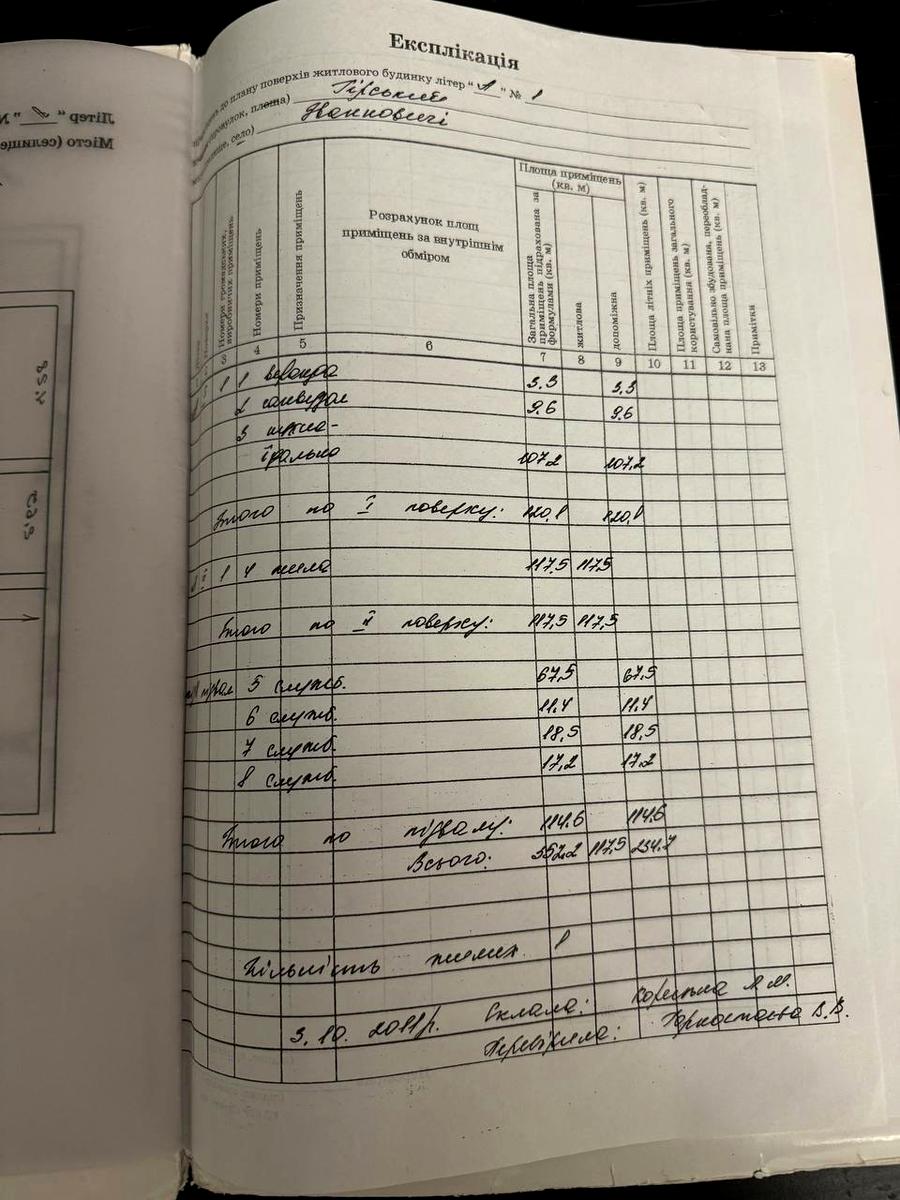 Експлікація
до плану поверхів житлового будинку літер " А " № 1
(провулок, площа) Гірський
село) Нанковичі
Літер " А " №
Місто (селище
Номери приміщень
Призначення приміщень
Розрахунок площ приміщень за внутрішнім обміром
Площа приміщень (кв. м)
Загальна площа приміщень підрахована за формулами (кв. м)
житлова
допоміжна
Площа літніх приміщень (кв. м)
Площа приміщень загального користування (кв. м)
Самовільно збудована, переобладнана площа приміщень (кв. м)
Примітки
3 4 5 6 7 8 9 10 11 12 13
1 1 веранда 3.3 3,3
2 санвузол 9.6 9.6
3 кухня-
їдальня 107,2 107,2
Итого по I поверху: 120,1 120,1
1 4 жила 117,5 117,5
Итого по II поверху: 117,5 117,5
підвал 5 служб. 67,5 67,5
6 служб. 11,4 11,4
7 служб. 18,5 18,5
8 служб. 17,2 17,2
Итого по підвалу: 114.6 114.6
Всього: 352,2 117,5 234.7
Кількість жилих 1
3. 10. 2011 р. Склала: А. М.
Перевірила: В. В.